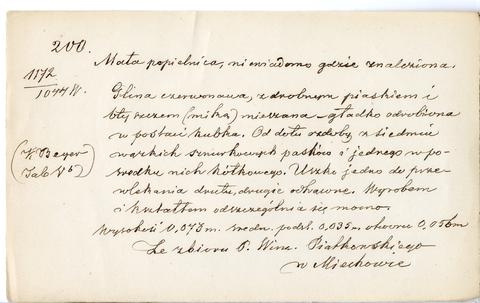 200.
Mała popielnica, niewiadomo gdzie znaleziona.
1172
1044 W.
Glina czerwonawa, z drobnym piaskiem i
błyszczem (miką) mieszana - gładko odrobiona
w postaci kubka. Od dołu ozdoby z siedmiu
wązkich sznurkowych pasków i jednego w po-
środku nich kółkowego. Uszko jedno do prze-
wlekania drutu, drugie odłamane. Wyrobem
i kształtem odszczególnia się mocno.
(K. Beyer
Tab V 5)
Wysokość 0,073 m. średn. podst. 0,035 m. otworu 0,056 m
Ze zbioru P. Winc. Piatkowskiego
w Miechowie